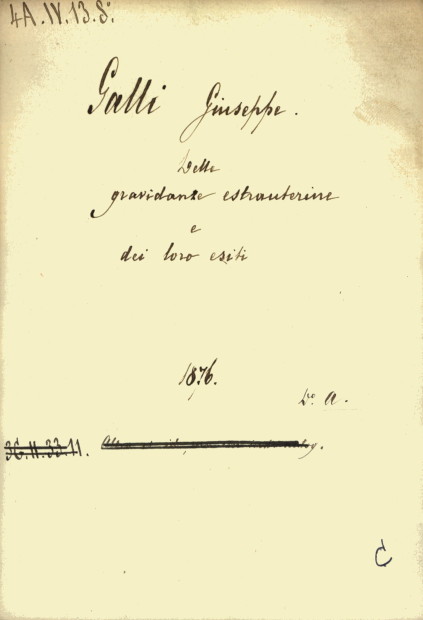 4A.IV.13.8°.
Galli Giuseppe.
Delle
gravidanze estrauterine
e
dei loro esiti
1876.
A.
36.II.33.11.
C